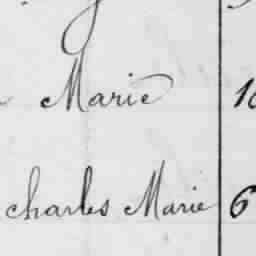 Marie
charles Marie 6